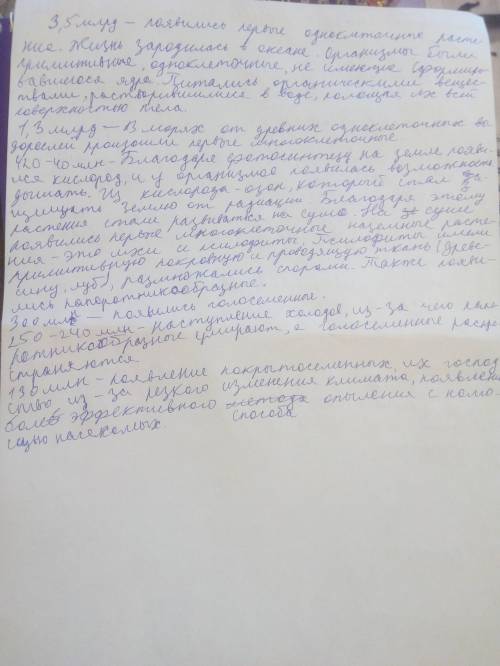 3,5 млрд – появились первые одноклеточные расте-
ние. Жизнь зародилась в океане. Организмы были
примитивные, одноклеточные, не имеющие сформиро-
вавшегося ядра. Питались органическими вещес-
твами, растворившимися в воде, поглощая их всей
поверхностью тела.
1,3 млрд – В морях от древних одноклеточных во-
дорослей произошли первые многоклеточные
420-40 млн – Благодаря фотосинтезу на земле появи-
лся кислород, и у организмов появилась возможность
дышать. Из кислорода – озон, который стал за-
щищать Землю от радиации. Благодаря этому
растения стали развиватся на суше. На суше
появились первые многоклеточные наземные расте-
ния – это мхи и псилофиты. Псилофиты имели
примитивную покровную и проводящую ткань (древе-
сину, луб), размножались спорами. Также появи-
лись папоротникообразные.
300 млн – появились голосеменные.
250-240 млн – наступление холодов, из-за чего папо-
ротникообразные умирают, а голосеменные распро-
страняются.
130 млн – появление покрытосеменных, их господ
ство из-за резкого изменения климата, появлен
более эффективного метода опыления с помо-
способа
щью насекомых.